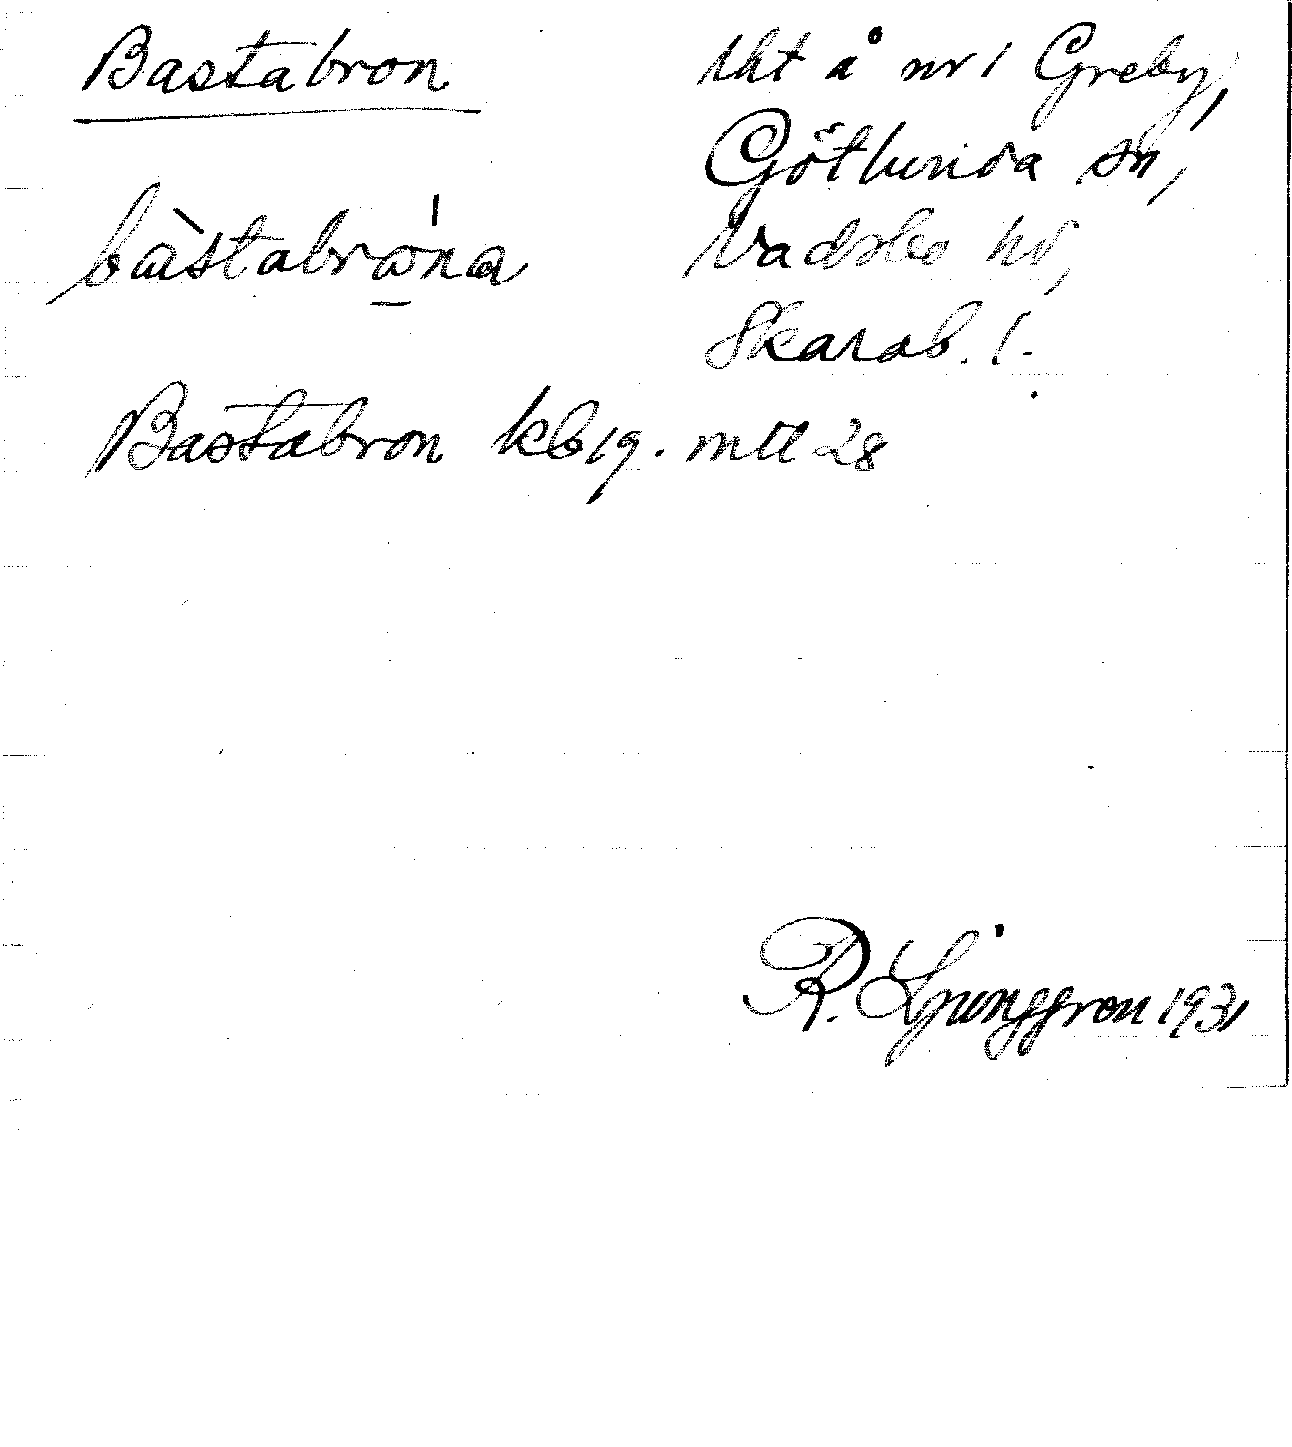 Bastabron
lht å nr 1 Greby,
Götlunda sn,
Vadsbo hd,
Skarab. l.
bàstabrωna
Bastabron kb 19. mtl 28
R. Ljunggren 1931